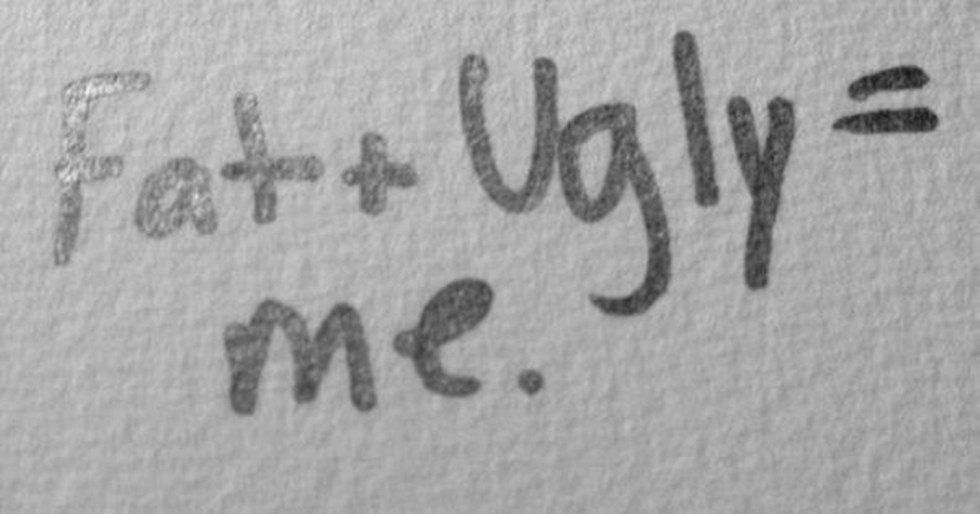 Fat + Ugly =
me.